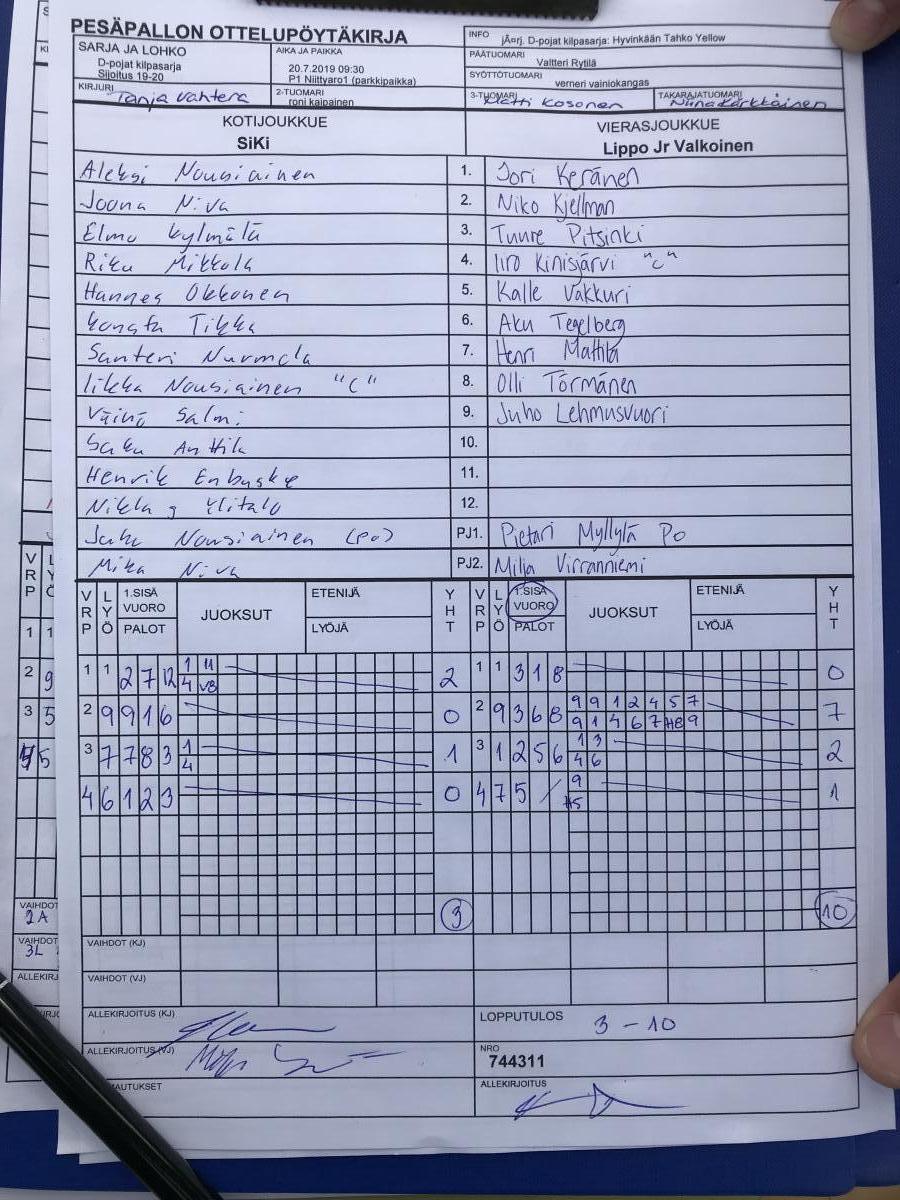 PESÄPALLON OTTELUPÖYTÄKIRJA
INFO jÃ¤rj. D-pojat kilpasarja: Hyvinkään Tahko Yellow
SARJA JA LOHKO
D-pojat kilpasarja
Sijoitus 19-20
AIKA JA PAIKKA
20.7.2019 09:30
P1 Niittyaro1 (parkkipaikka)
PÄÄTUOMARI
Valtteri Rytilä
SYÖTTÖTUOMARI
verneri vainiokangas
KIRJURI Tanja Vahtera
2-TUOMARI
roni kaipainen
3-TUOMARI Matti Kosonen
TAKARAJATUOMARI Niina Kärkkäinen
KOTIJOUKKUE
SiKi
VIERASJOUKKUE
Lippo Jr Valkoinen
Aleksi Nousiainen 1. Jori Keränen
Joona Niva 2. Niko Kjellman
Elmo Kylmälä 3. Tuure Pitsinki
Riku Mikkola 4. Iiro Kinisjärvi "C"
Hannes Okkonen 5. Kalle Vakkuri
Konsta Tikka 6. Aku Tegelberg
Santeri Nurmela 7. Henri Mattila
Iikka Nousiainen "C" 8. Olli Törmänen
Väinö Salmi 9. Juho Lehmusvuori
Saku Anttila 10.
Henrik Enbuske 11.
Niklas Ylitalo 12.
Juha Nousiainen (Po) PJ1. Pietari Myllylä Po
Mika Niva PJ2. Milja Virranniemi
VRP LYÖ 1.SISÄ VUORO PALOT JUOKSUT ETENIJÄ LYÖJÄ YHT VRP LYÖ 1.SISÄ VUORO PALOT JUOKSUT ETENIJÄ LYÖJÄ YHT
1 1 2 7 12 1 11 2 1 1 3 1 8 0
4 V8
2 9 9 1 6 0 2 9 3 6 8 9 9 1 2 4 5 7 7
9 1 4 6 7 H8 9
3 7 7 8 3 1 1 3 1 2 5 6 1 3 2
4 4 6
4 6 1 2 3 0 4 7 5 / 9 1
H5
3 10
VAIHDOT (KJ)
VAIHDOT (VJ)
ALLEKIRJOITUS (KJ)
LOPPUTULOS 3 - 10
ALLEKIRJOITUS (VJ)
NRO
744311
AUTUKSET
ALLEKIRJOITUS
VRP
1 1
2 9
3 5
5
VAIHDOT
2A
VAIHDOT
3L
ALLEKIRJ